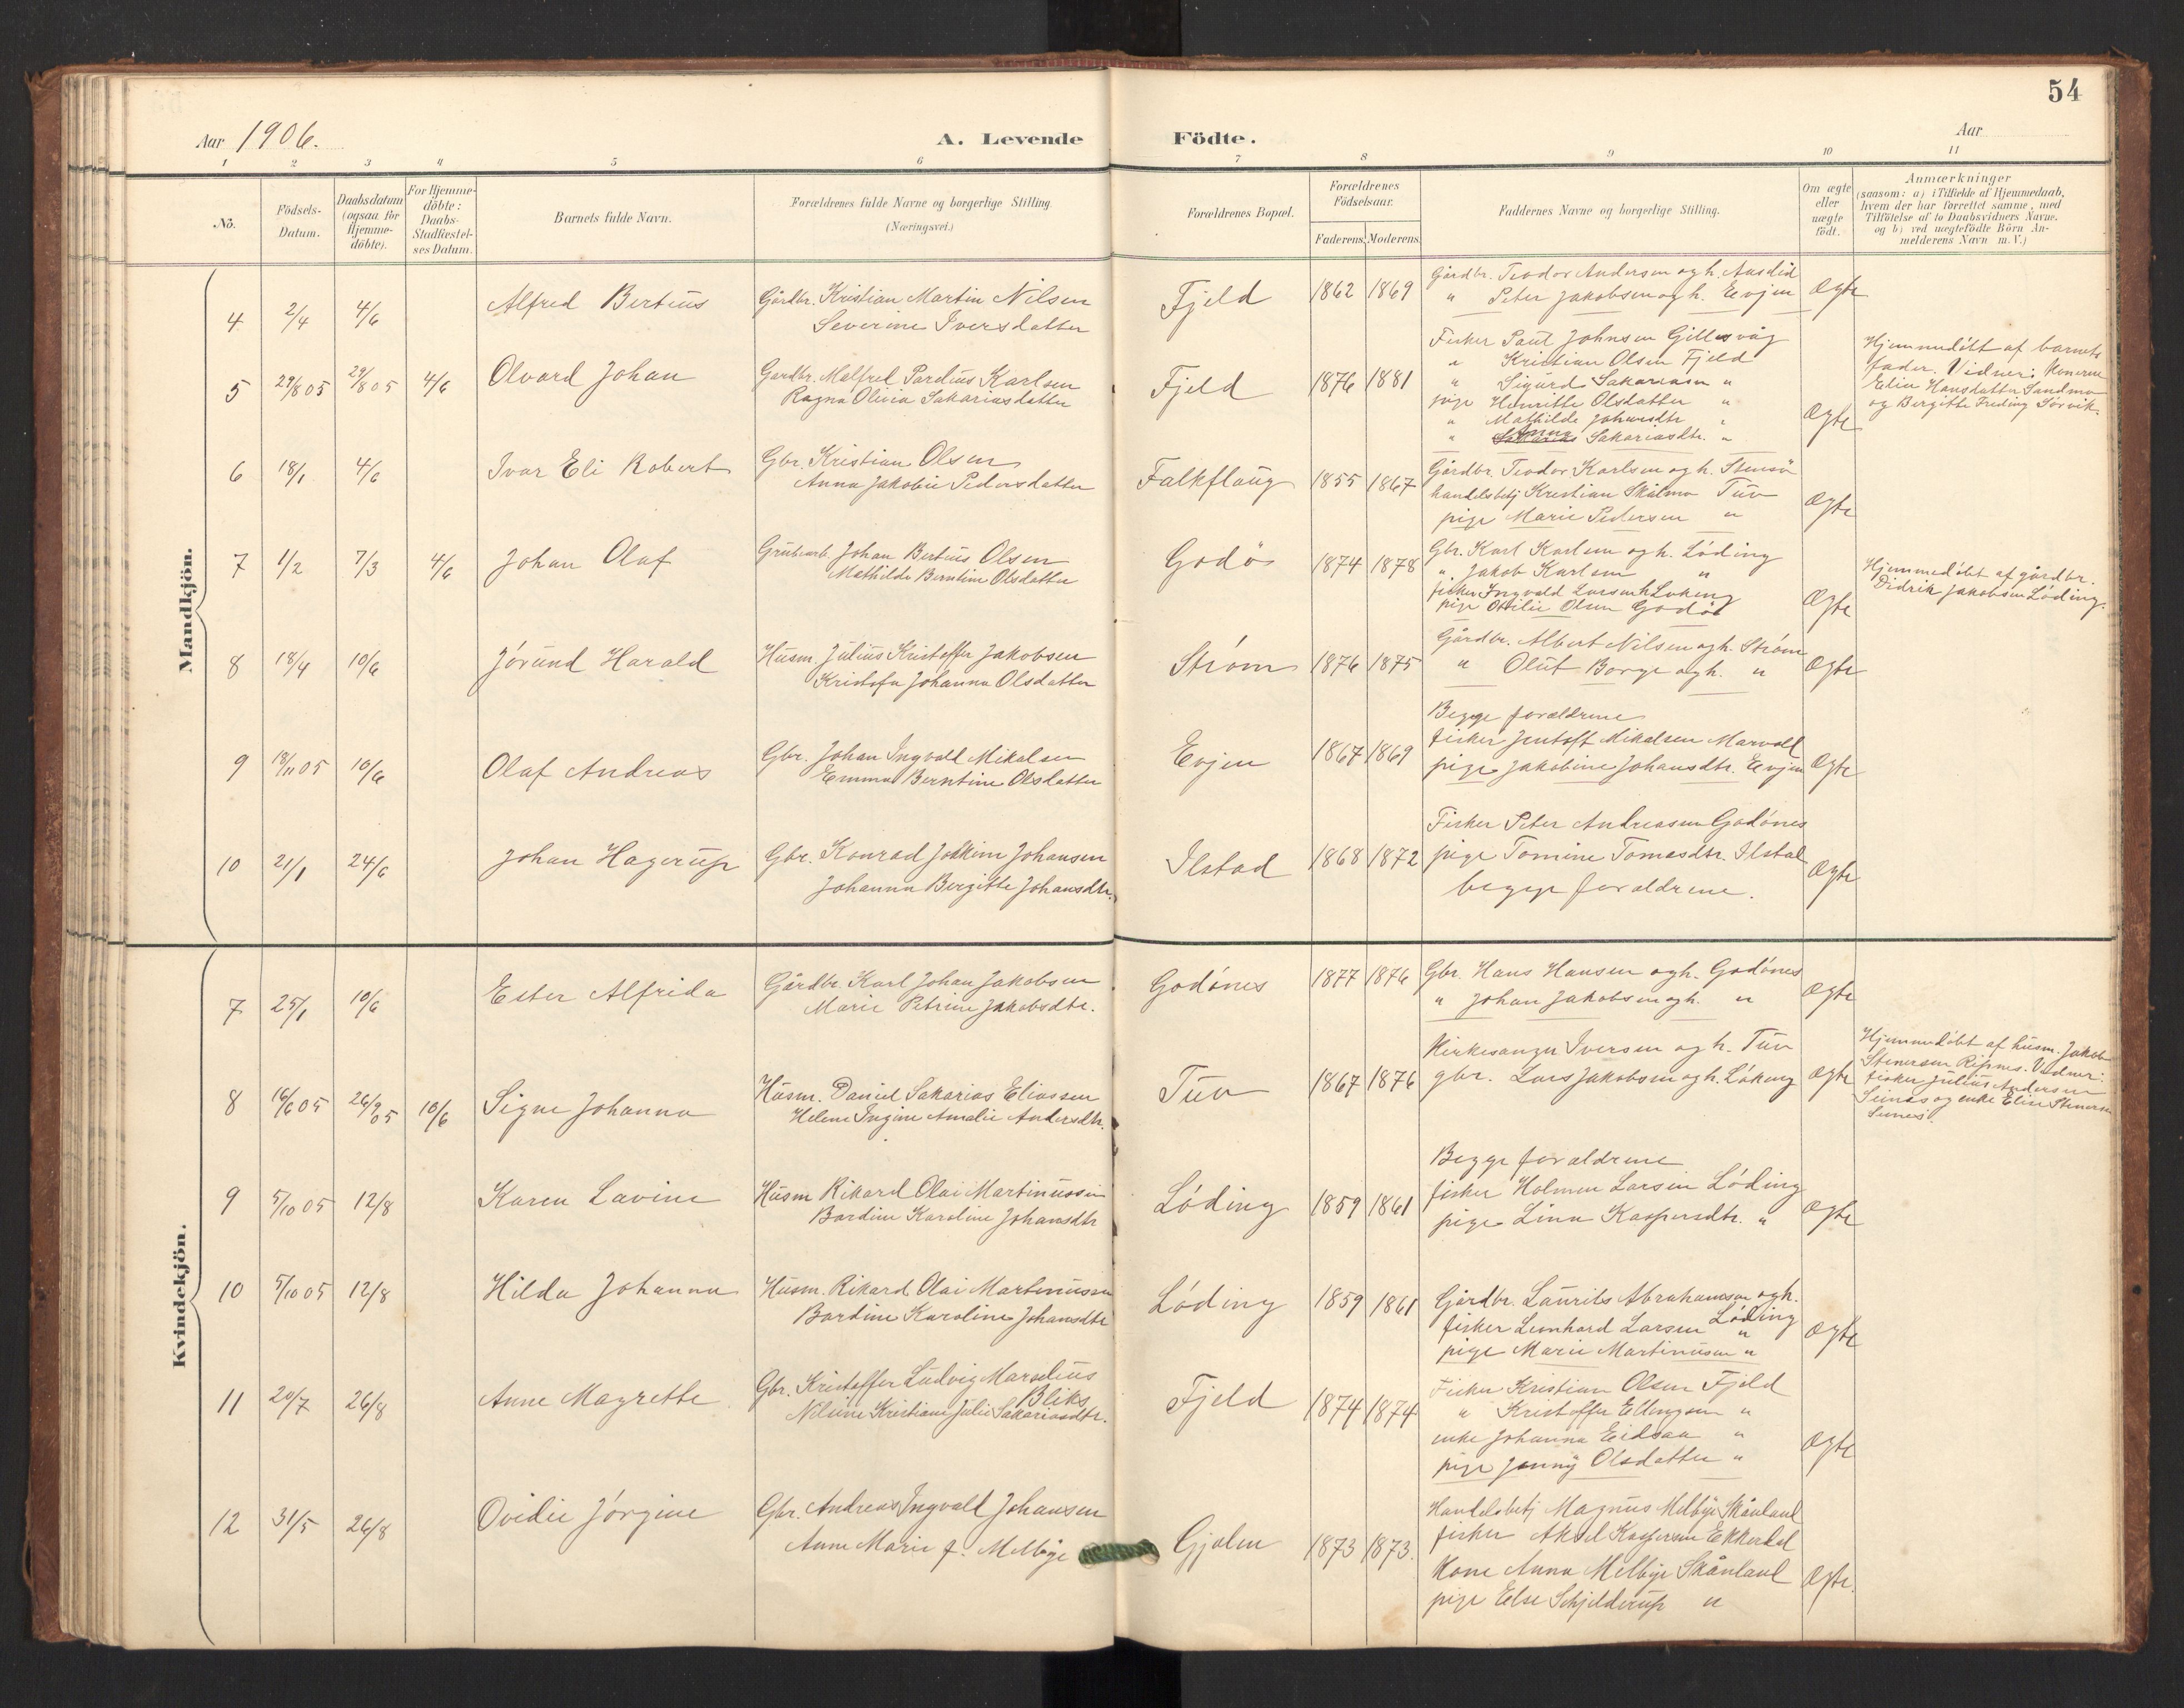 54
Aar 1906.
A. Levende Födte.
Aar
1 2 3 4 5 6 7 8 9 10 11
No.
Födsels-
Datum.
Daabsdatum
(ogsaa for
Hjemme-
döbte).
For Hjemme-
döbte:
Daabs-
Stadfæstel-
ses Datum.
Barnets fulde Navn.
Forældrenes fulde Navne og borgerlige Stilling.
(Næringsvei.)
Forældrenes Bopæl.
Forældrenes
Födselsaar.
Faderens. Moderens.
Faddernes Navne og borgerlige Stilling.
Om ægte
eller
uægte
födt.
Anmærkninger
(saasom: a) i Tilfælde af Hjemmedaab,
hvem der har forrettet samme, med
Tilföielse af to Daabsvidners Navne.
og b) ved uægtefödte Börn An-
melderens Navn m. V.)
Mandkjön.
4 2/4 4/6 Alfred Bertius
Gårdbr. Kristian Martin Nilsen
Severine Iversdatter
Fjeld 1862 1869
Gårdbr. Teodor Andersen og h.
" Peter Jakobsen og h. Evjen
Ægte
5 29/8 05 29/8 05 4/6 Olvard Johan
Gardbr. Malfred Pardius Karlsen
Ragna Olivia Sakariasdatter
Fjeld 1876 1881
Fisker Paul Johnsen Gillesvåg
" Kristian Olsen Fjeld
" Sigurd Sakariasen "
pige Henritte Olsdatter "
" Mathilde Johansdtr. "
" Anna Sakariasdtr. "
Ægte
Hjemmedöbt af barnets
fader. Vidner: Konerne
Elin Hansdatter Sandmo
og Bergitte Freding Sörvik.
6 18/1 4/6 Ivar Eli Robert
Gbr. Kristian Olsen
Anna Jakobie Pedersdatter
Falkflaug 1855 1867
Gårdbr. Teodor Karlsen og h. Stensö
handelsbetj Kristian Skålmo Tuv
pige Marie Pedersen "
Ægte
7 1/2 7/3 4/6 Johan Olaf
Grubearb. Johan Bertius Olsen
Mathilde Berntine Olsdatter
Godö 1874 1878
Gbr. Karl Karlsen og h. Löding
" Jakob Karlsen "
fisker Ingvald Larsen Löking
pige Otilie Olsen Godö
Ægte
Hjemmedöbt af gårdbr.
Didrik Jakobsen Löding.
8 18/4 10/6 Jörund Harald
Husm. Julius Kristoffer Jakobsen
Kristofa Johanna Olsdatter
Ström 1876 1875
Gårdbr. Albert Nilsen og h. Ström
" Oluf Borge og h. "
Ægte
9 18/11 05 10/6 Olaf Andreas
Gbr. Johan Ingvald Mikalsen
Emma Berntine Olsdatter
Evjen 1867 1869
Begge forældrene
fisker Jentoft Mikalsen Marvoll
pige Jakobine Johansdtr. Evjen
Ægte
10 21/1 24/6 Johan Hagerup
Gbr. Konrad Joakim Johansen
Johanna Bergitte Johansdtr.
Ilstad 1868 1872
Fisker Peter Andreasen Godönes
pige Tomine Tomasdtr. Ilstad
begge forældrene.
Ægte
Kvindekjön.
7 25/1 10/6 Ester Alfrida
Gårdbr. Karl Johan Jakobsen
Marie Petrine Jakobsdtr.
Godönes 1877 1876
Gbr. Hans Hansen og h. Godönes
" Johan Jakobsen og h. "
Ægte
8 16/6 05 26/9 05 10/6 Signe Johanna
Husm. Daniel Sakarias Eliassen
Helene Ingine Amalie Andersdtr.
Tuv 1867 1876
Kirkesanger Iversen og h. Tuv
gbr. Lars Jakobsen og h. Löking
Ægte
Hjemmedöbt af husm. Jakob
Stenersen Ripnes. Vidner:
fisker Julius Andersen
Seines og enke Elise Stenersen
Seines.
9 5/10 05 12/8 Karen Lavine
Husm Rikard Olai Martinussen
Bardine Karoline Johansdtr
Löding 1859 1861
Begge forældrene
fisker Holmer Larsen Löding
pige Lina Kaspersdtr. "
Ægte
10 5/10 05 12/8 Hilda Johanna
Husm. Rikard Olai Martinussen
Bardine Karoline Johansdtr
Löding 1859 1861
Gårdbr. Laurits Abrahamsen og h.
Löding
fisker Leonhard Larsen "
pige Marie Martinusen "
Ægte
11 20/7 26/8 Anne Magrethe
Gbr. Kristoffer Ludvig Marselius
Bliks
Kristiane Julie Sakariasdtr.
Fjeld 1874 1874
Fisker Kristian Olsen Fjeld
" Kristoffer Ellingsen "
enke Johanna Eidsaa "
pige Jenny Olsdatter "
Ægte
12 31/5 26/8 Ovidie Jörgine
Gbr. Andreas Ingvald Johansen
Anne Marie f. Melbye
Gjelen 1873 1873.
Handelsbetj Magnus Melbye Skånland
fisker Aksel Kaspersen
Kone Anna Melbye Skånland
pige Else Schjelderup "
Ægte.